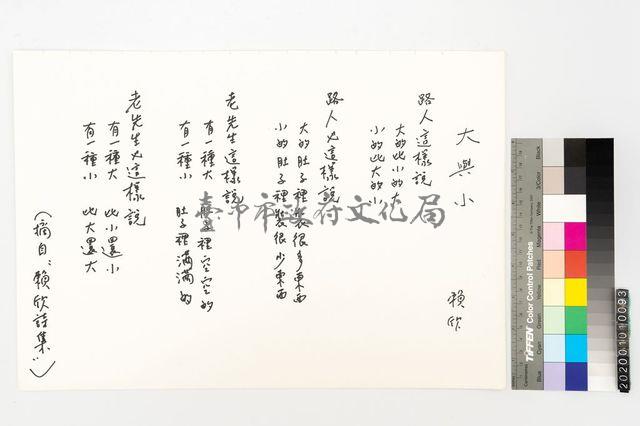 大與小
賴欣
路人這樣說
大的比小的大
小的比大的小
路人又這樣說
大的肚子裡裝很多東西
小的肚子裡裝很少東西
老先生這樣說
有一種大 肚子裡空空的
有一種小 肚子裡滿滿的
老先生又這樣說
有一種大 比小還小
有一種小 比大還大
(摘自:賴欣詩集")
臺中市政府文化局
Black
3/Color
White
Magenta
Red
Yellow
Green
Cyan
Blue
TIFFEN Color Control Patches
202001010093